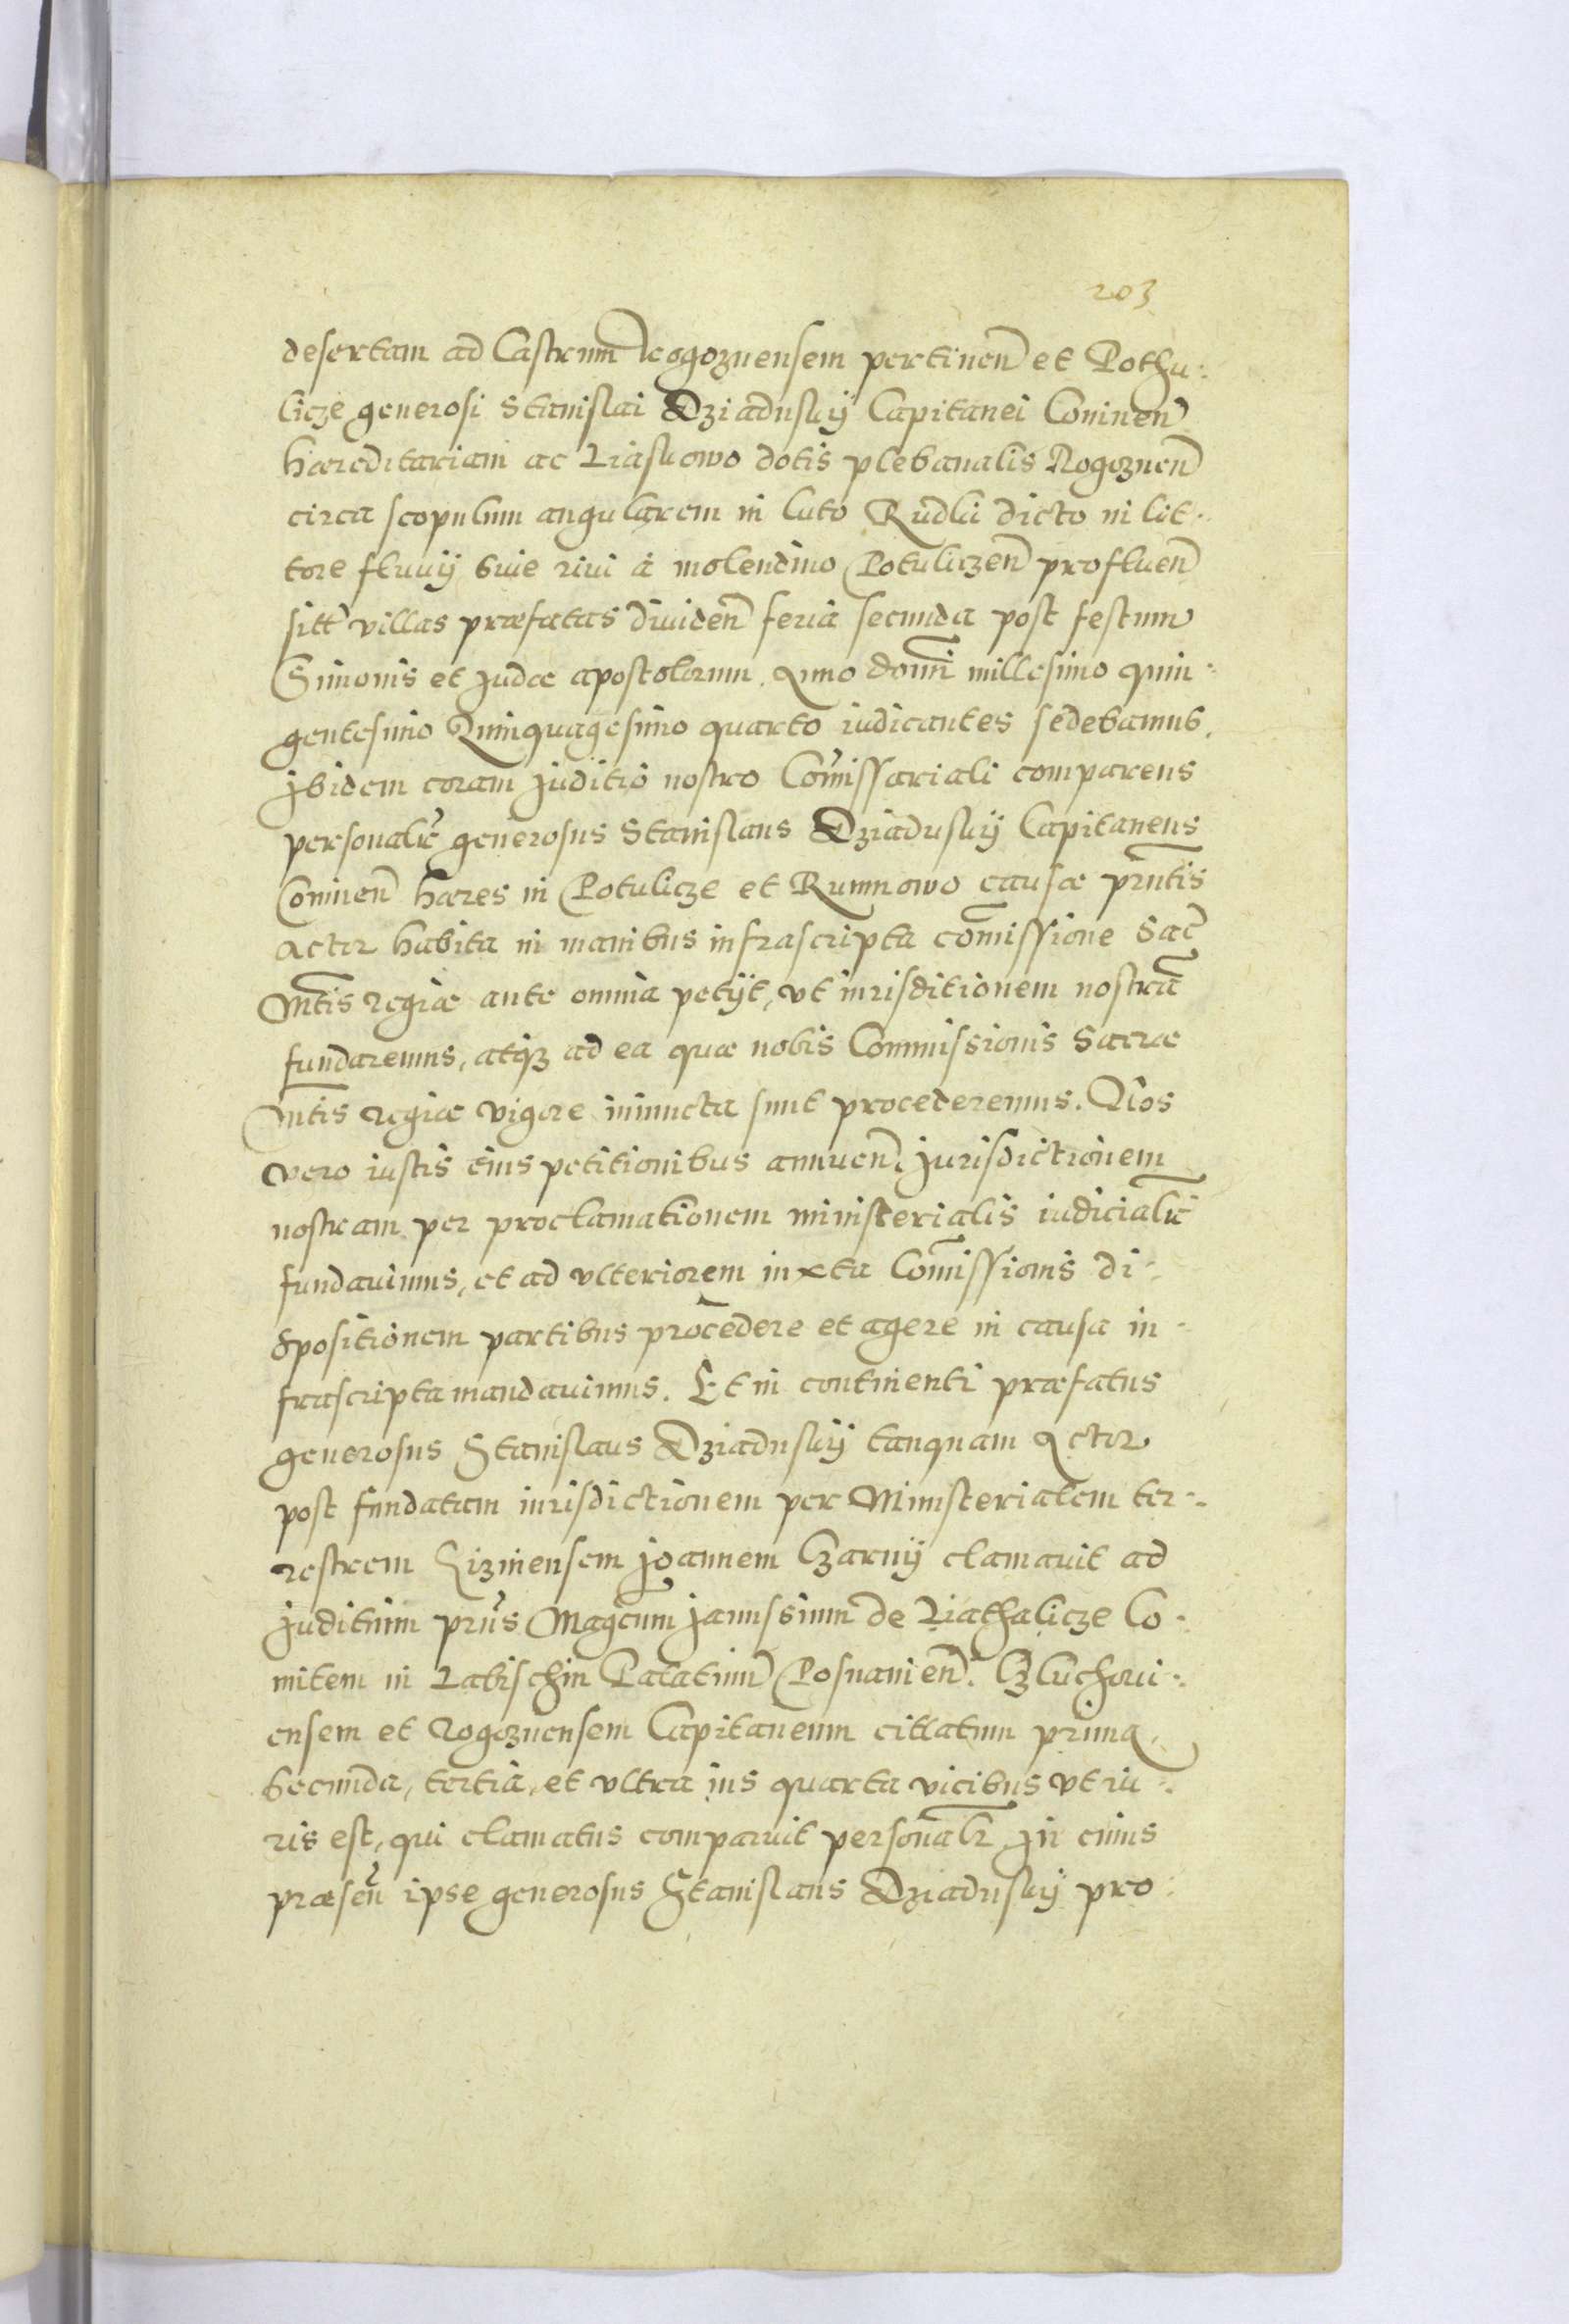 203
desertam ad Castrum Rogoznensem pertinen̄ et Pothu-
licze generosi Stanislai Dziaduskÿ Capitanei Coninen̄
hæreditariam ac Liaskowo dotis plebanalis Rogoznen̄
circa scopulum angularem in luto Rudki dicto in lit-
tore fluvij sive rivi à molendino Potuliczen̄ profluen̄
sitt̄ villas præfatas dividen̄ feria secunda post festum
Simonis et Judæ apostolorum. Anno Domi̅ millesimo quin-
gentesimo Quinquagesimo quarto iudicantes sedebamus.
Jbidem coram Juditio nostro Com̄issariali comparens
personalr̄ generosus Stanislaus Dziaduskÿ Capitaneus
Coninen̄ hæres in Potulicze et Rumnowo causæ pn̄tis
Actor habita in manibus infrascripta com̄issione Sac̄
Mtis̄ regiæ ante omnia petijt, vt iurisditionem nostrā
fundaremus, atqȝ ad ea quæ nobis Commissionis Sacræ
Mtis̄ regiæ vigore iniuncta sunt procederemus. Nos
vero iustis eius petitionibus annuen̄. Jurisdictionem
nostram per proclamationem ministerialis iudicialr̄
fundavimus, et ad vlteriorem iuxta Com̄issionis di-
spositionem partibus procedere et agere in causa in-
frascripta mandavimus. Et in continenti præfatus
generosus Stanislaus Dziaduskÿ tanquam Actor
post fundatam iurisdictionem per Ministerialem ter-
restrem Kizinensem Joannem Czarnÿ clamavit ad
Juditium prius Magcum̄ Janussium de Liathalicze Co-
mitem in Labischin Palatinū Posnanien̄. Czluchovi-
ensem et Rogoznensem Capitaneum cittatum prima,
secunda, tertia, et vltra ius quarta vicibus vt iu-
ris est, qui clamatus comparuit personalr̄ in cuius
præsen̄ ipse generosus Stanislaus Dziaduskÿ pro-